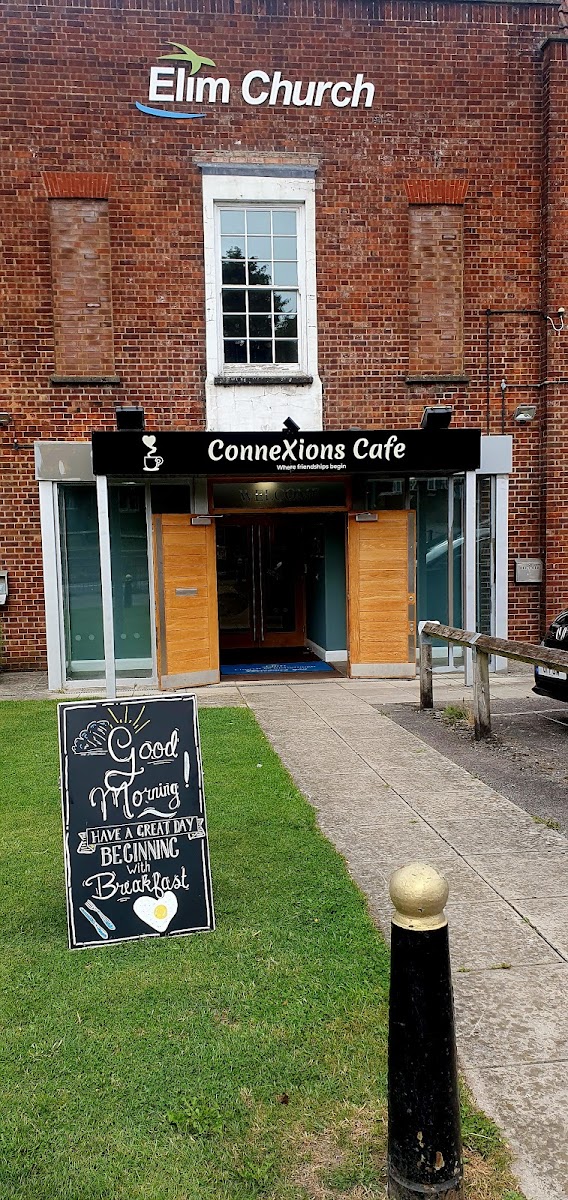 Elim Church
ConneXions Cafe
Where friendships begin
WELCOME
Good
Morning!
HAVE A GREAT DAY
BEGINNING
with
Breakfast